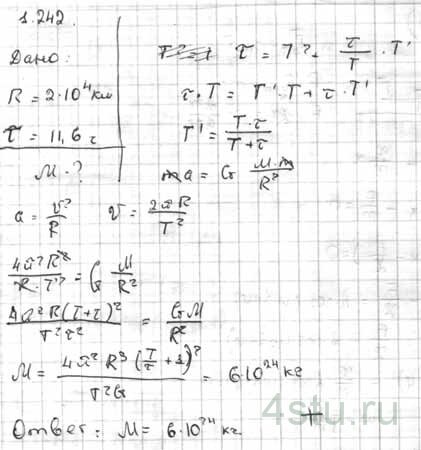 1.242.
Дано:
R = 2·10⁴ км
τ = 11,6 ч
M - ?
τ = T' + τ/T · T'
τ·T = T'·T + τ·T'
T' = T·τ / T+τ
ma = G M·m / R²
a = v²/R v = 2πR / T'
4π²R² / R·T'² = G M/R²
4π²R(T+τ)² / T²τ² = GM/R²
M = 4π²R³(T/τ + 1)² / T²G = 6·10²⁴ кг
Ответ: M = 6·10²⁴ кг.
+
4stu.ru